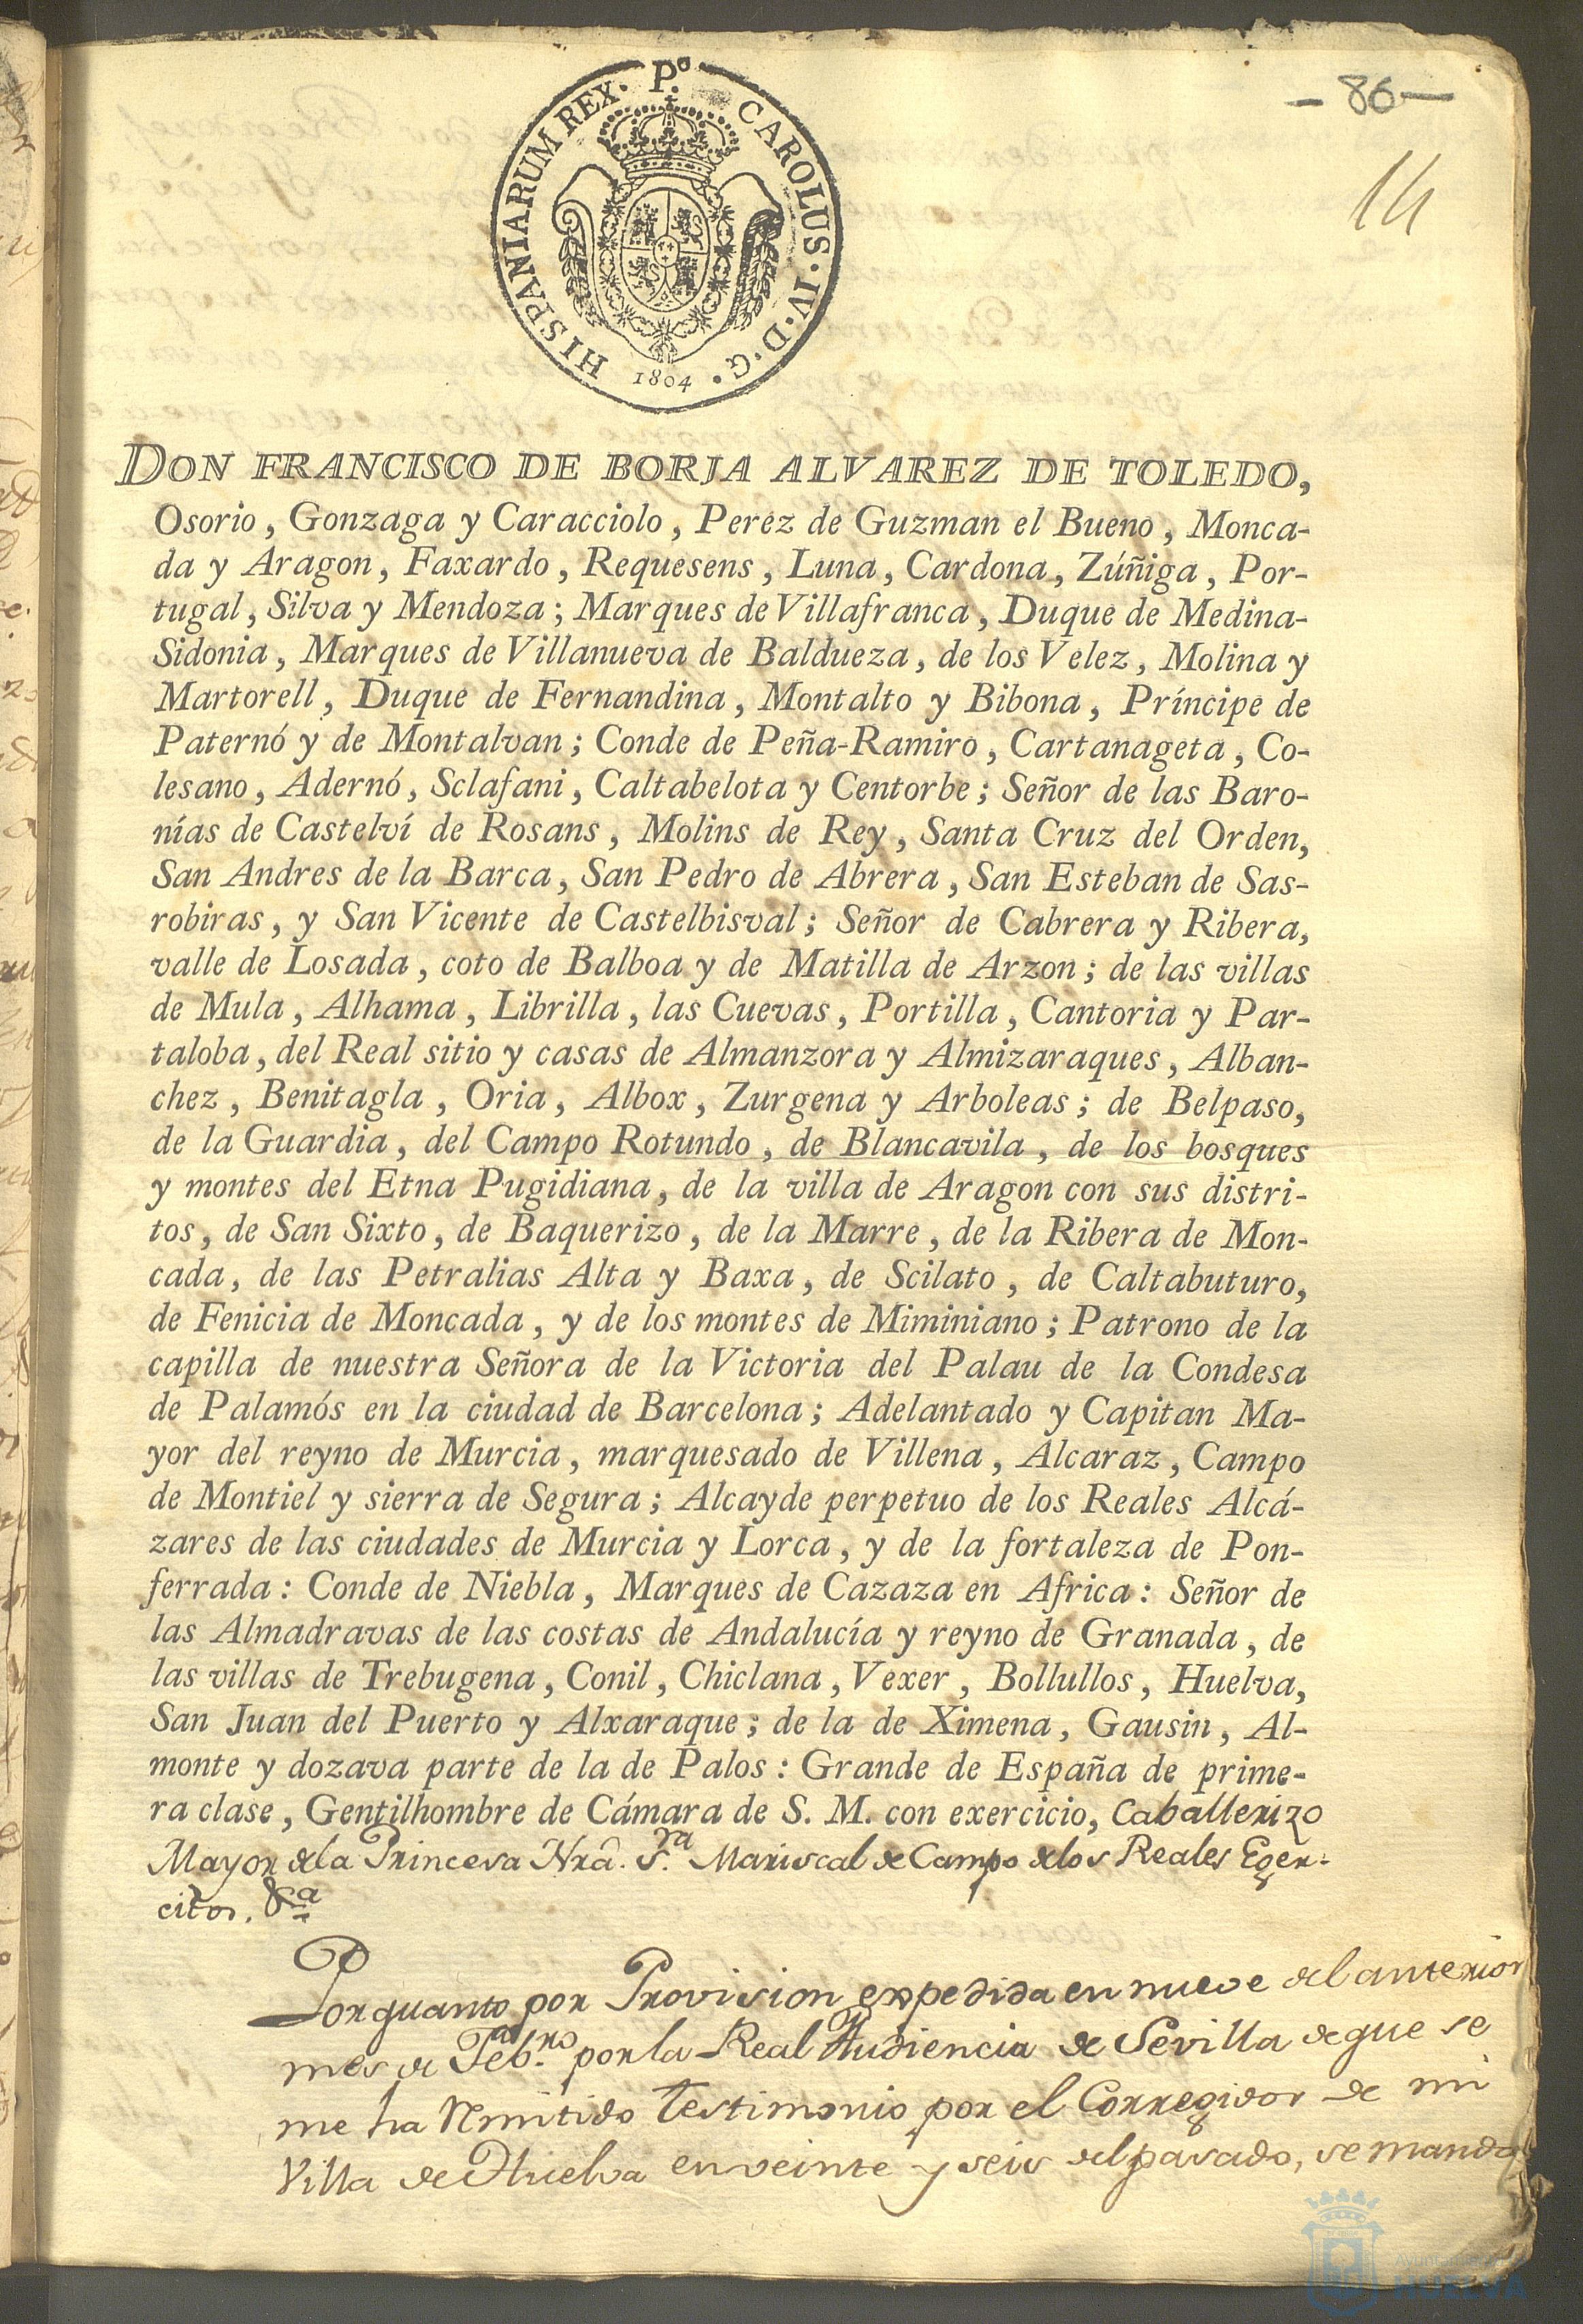 Pº
HISPANIARUM REX. CAROLUS·IV·D·G·
1804
- 86 -
14
DON FRANCISCO DE BORJA ALVAREZ DE TOLEDO,
Osorio, Gonzaga y Caracciolo, Perez de Guzman el Bueno, Monca-
da y Aragon, Faxardo, Requesens, Luna, Cardona, Zúñiga, Por-
tugal, Silva y Mendoza; Marques de Villafranca, Duque de Medina-
Sidonia, Marques de Villanueva de Baldueza, de los Velez, Molina y
Martorell, Duque de Fernandina, Montalto y Bibona, Príncipe de
Paternó y de Montalvan; Conde de Peña-Ramiro, Cartanageta, Co-
lesano, Adernó, Sclafani, Caltabelota y Centorbe; Señor de las Baro-
nías de Castelví de Rosans, Molins de Rey, Santa Cruz del Orden,
San Andres de la Barca, San Pedro de Abrera, San Esteban de Sas-
robiras, y San Vicente de Castelbisval; Señor de Cabrera y Ribera,
valle de Losada, coto de Balboa y de Matilla de Arzon; de las villas
de Mula, Alhama, Librilla, las Cuevas, Portilla, Cantoria y Par-
taloba, del Real sitio y casas de Almanzora y Almizaraques, Alban-
chez, Benitagla, Oria, Albox, Zurgena y Arboleas; de Belpaso,
de la Guardia, del Campo Rotundo, de Blancavila, de los bosques
y montes del Etna Pugidiana, de la villa de Aragon con sus distri-
tos, de San Sixto, de Baquerizo, de la Marre, de la Ribera de Mon-
cada, de las Petralias Alta y Baxa, de Scilato, de Caltabuturo,
de Fenicia de Moncada, y de los montes de Miminiano; Patrono de la
capilla de nuestra Señora de la Victoria del Palau de la Condesa
de Palamós en la ciudad de Barcelona; Adelantado y Capitan Ma-
yor del reyno de Murcia, marquesado de Villena, Alcaraz, Campo
de Montiel y sierra de Segura; Alcayde perpetuo de los Reales Alcá-
zares de las ciudades de Murcia y Lorca, y de la fortaleza de Pon-
ferrada: Conde de Niebla, Marques de Cazaza en Africa: Señor de
las Almadravas de las costas de Andalucía y reyno de Granada, de
las villas de Trebugena, Conil, Chiclana, Vexer, Bollullos, Huelva,
San Juan del Puerto y Alxaraque; de la de Ximena, Gausin, Al-
monte y dozava parte de la de Palos: Grande de España de prime-
ra clase, Gentilhombre de Cámara de S. M. con exercicio, Caballerizo
Mayor de la Princesa Nrâ. S.ra Mariscal de Campo de los Reales Eger-
citos. &a
Por quanto por Provision expedida en nueve del anterior
mes de Feb.ro por la Real Audiencia de Sevilla de que se
me ha remitido Testimonio por el Corregidor de mi
Villa de Huelva en veinte y seis del pasado, se manda
HUELVA